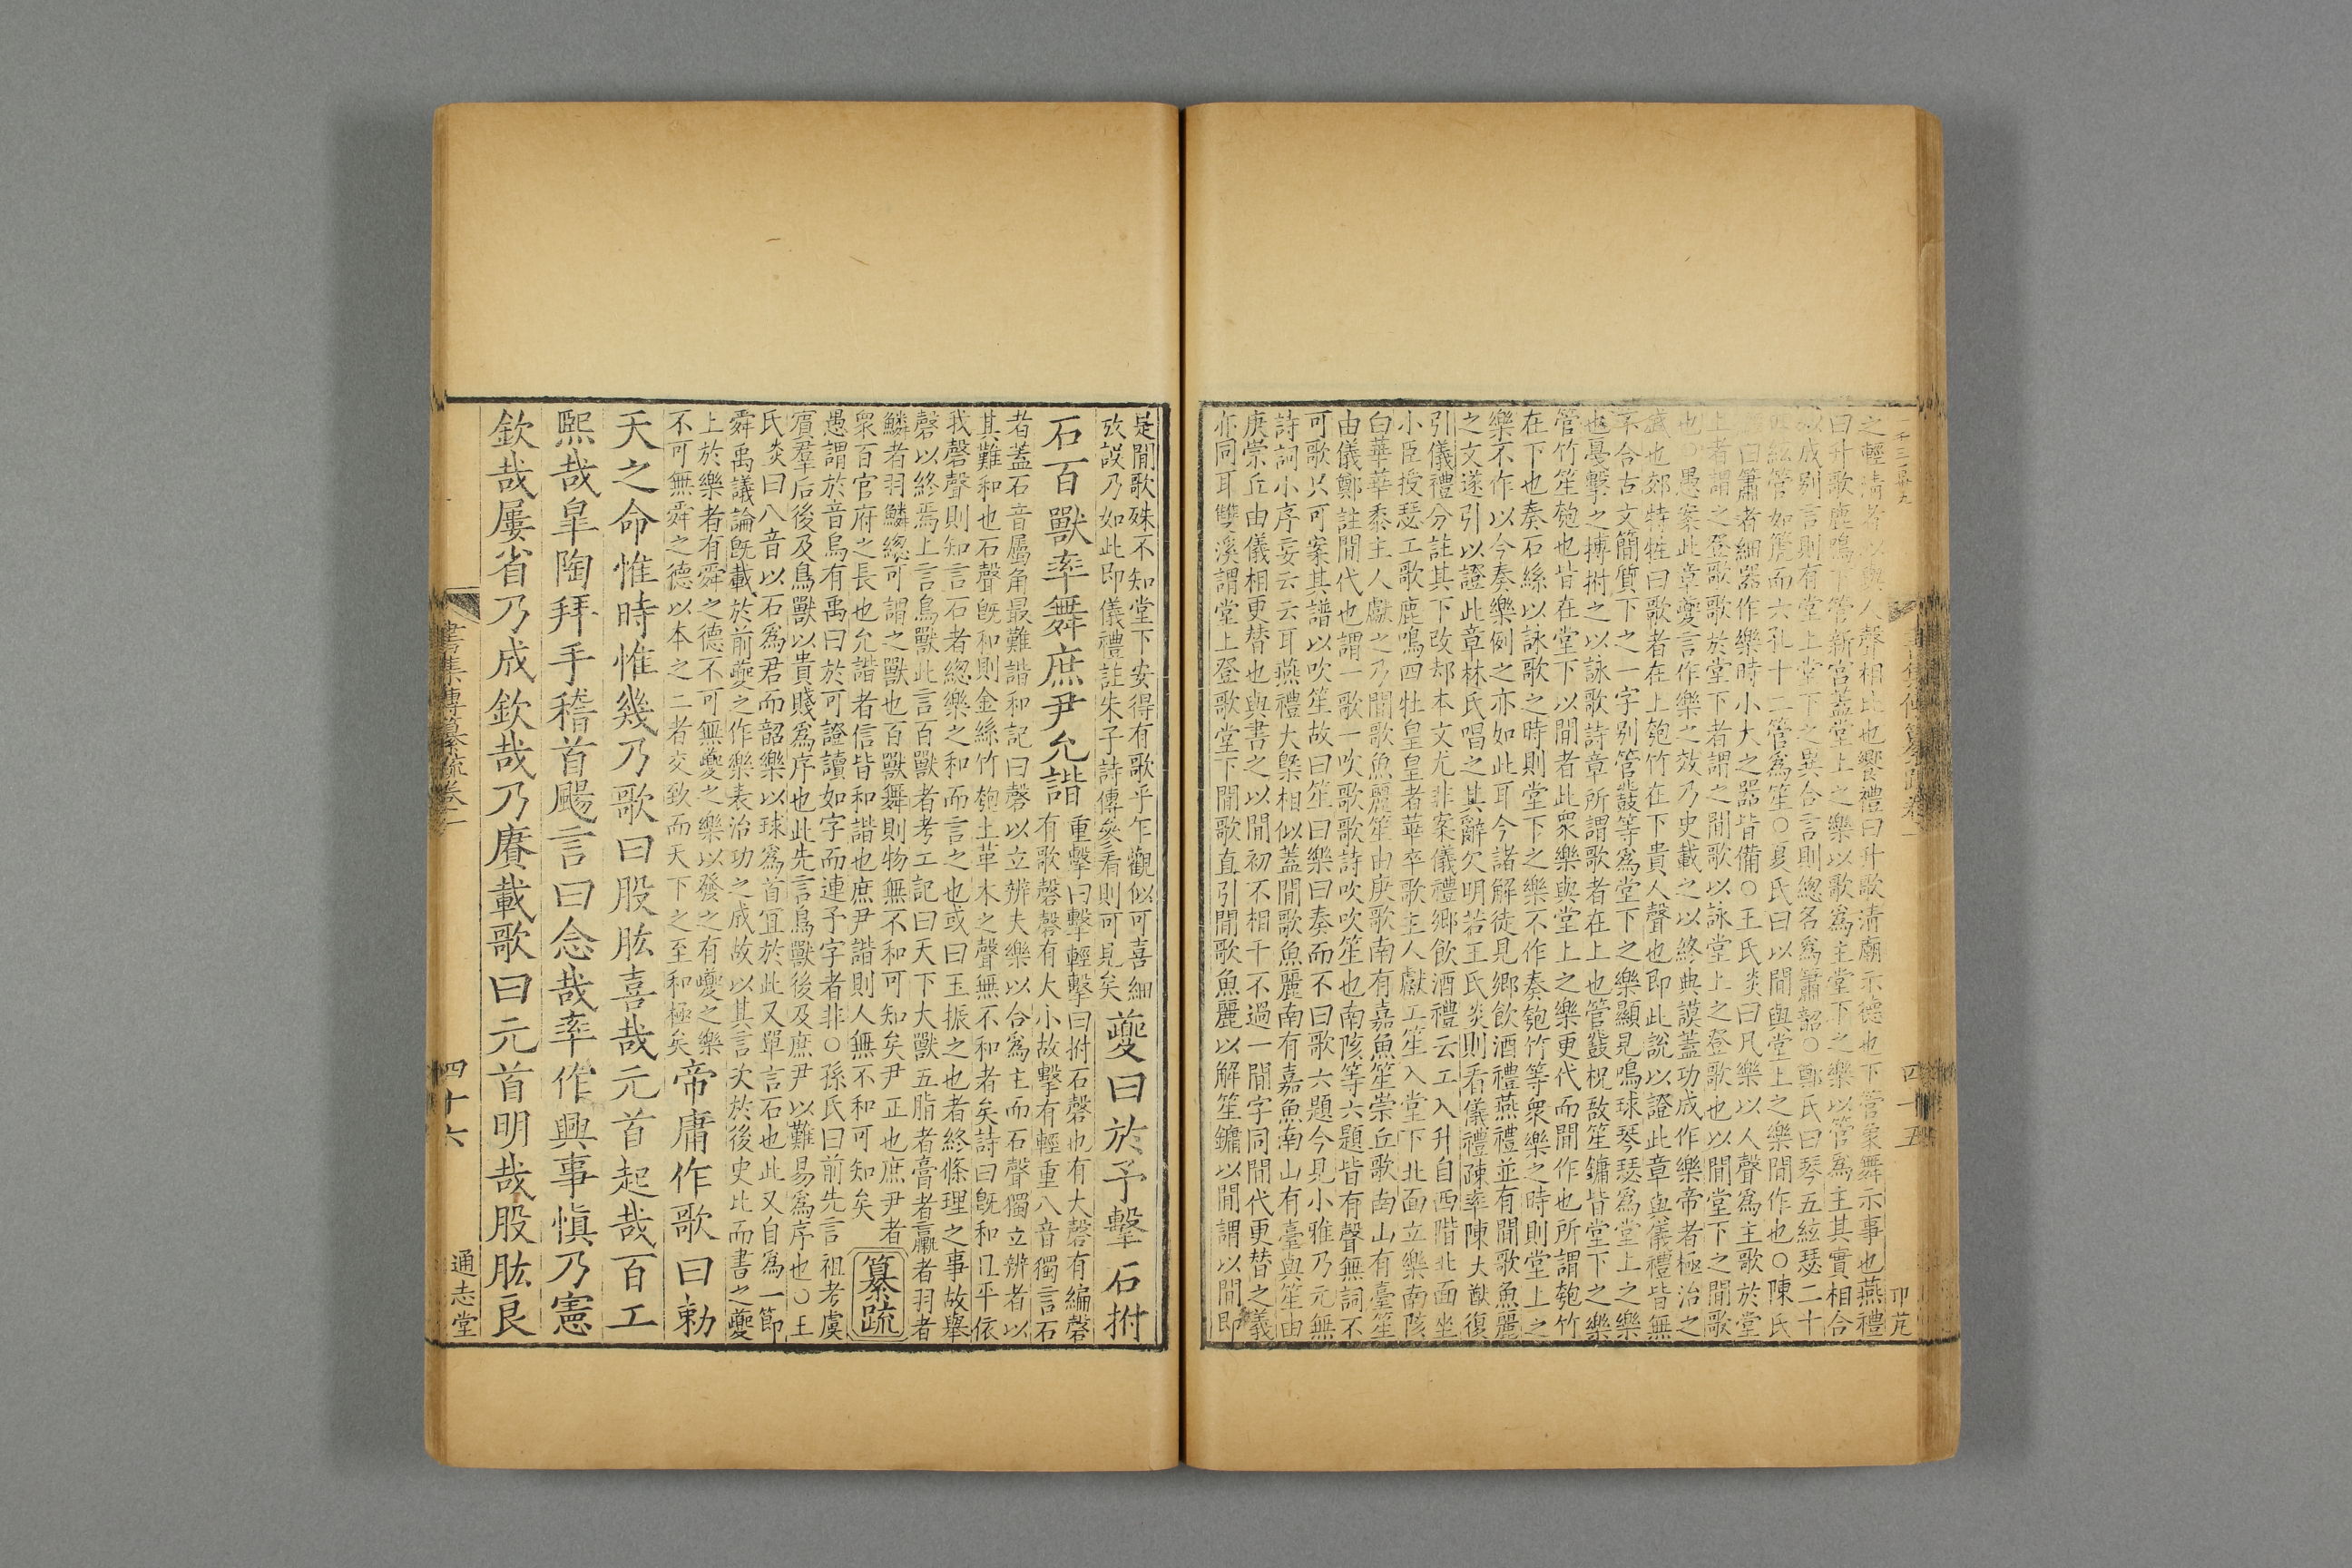 之輕清者以與人聲相比也饗禮曰升歌清廟示德也下管象舞示事也燕禮
曰升歌鹿鳴下管新宮蓋堂上之樂以歌爲主堂下之樂以管爲主其實相合
以成别言則有堂上堂下之異合言則總名爲簫韶○鄭氏曰琴五絃瑟二十
絃管如篪而六孔十二管爲笙○夏氏曰以間與堂上之樂間作也○陳氏
曰簫者細器作樂時小大之器皆備○王氏炎曰凡樂以人聲爲主歌於堂
上者謂之登歌歌於堂下者謂之間歌以詠堂上之登歌也以間堂下之間歌
也 愚案此章夔言作樂之效乃史載之以終典謨蓋功成作樂帝者極治之
盛也郊特牲曰歌者在上匏竹在下貴人聲也即此說以證此章與儀禮皆無
不合古文簡質下之一字别管鼗等爲堂下之樂顯見鳴球琴瑟爲堂上之樂
也戞擊之搏拊之以詠歌詩章所謂歌者在上也管鼗柷敔笙鏞皆堂下之樂
管竹笙匏也皆在堂下以間者此衆樂與堂上之樂更代而間作也所謂匏竹
在下也奏石絲以詠歌之時則堂下之樂不作奏匏竹等衆樂之時則堂上之
樂不作以今奏樂例之亦如此耳今諸解徒見鄉飲酒禮燕禮並有間歌魚麗
之文遂引以證此章林氏唱之其辭欠明若王氏炎則看儀禮疎率陳大猷復
引儀禮分註其下改却本文尤非案儀禮鄉飲酒禮云工入升自西階北面坐
小臣授瑟工歌鹿鳴四牡皇皇者華卒歌主人獻工笙入堂下北面立樂南陔
白華華黍主人獻之乃間歌魚麗笙由庚歌南有嘉魚笙崇丘歌南山有臺笙
由儀鄭註間代也謂一歌一吹歌歌詩吹吹笙也南陔等六題皆有聲無詞不
可歌只可案其譜以吹笙故曰笙曰樂曰奏而不曰歌六題今見小雅乃元無
詩詞小序妄云云耳燕禮大槩相似蓋間歌魚麗南有嘉魚南山有臺與笙由
庚崇丘由儀相更替也與書之以間初不相干不過一間字同間代更替之義
亦同耳雙溪謂堂上登歌堂下間歌直引間歌魚麗以解笙鏞以間謂以間即
是間歌殊不知堂下安得有歌乎乍觀似可喜細
攷誤乃如此即儀禮註朱子詩傳參看則可見矣
夔曰於予擊石拊
石百獸率舞庶尹允諧
重擊曰擊輕擊曰拊石磬也有大磬有編磬
有歌磬磬有大小故擊有輕重八音獨言石
者蓋石音屬角最難諧和記曰磬以立辨夫樂以合爲主而石聲獨立辨者以
其難和也石聲旣和則金絲竹匏土革木之聲無不和者矣詩曰旣和且平依
我磬聲則知言石者總樂之和而言之也或曰玉振之也者終條理之事故舉
磬以終焉上言鳥獸此言百獸者考工記曰天下大獸五脂者膏者臝者羽者
鱗者羽鱗總可謂之獸也百獸舞則物無不和可知矣尹正也庶尹者
衆百官府之長也允諧者信皆和諧也庶尹諧則人無不和可知矣
纂疏
愚謂於音烏有禹曰於可證讀如字而連予字者非○孫氏曰前先言祖考虞
賓羣后後及鳥獸以貴賤爲序也此先言鳥獸後及庶尹以難易爲序也○王
氏炎曰八音以石爲君而韶樂以球爲首宜於此又單言石也此又自爲一節
舜禹議論旣載於前夔之作樂表治功之成故以其言次於後史比而書之夔
上於樂者有舜之德不可無夔之樂以發之有夔之樂
不可無舜之德以本之二者交致而天下之至和極矣
帝庸作歌曰勑
天之命惟時惟幾乃歌曰股肱喜哉元首起哉百工
熙哉臯陶拜手稽首颺言曰念哉率作興事愼乃憲
欽哉屢省乃成欽哉乃賡載歌曰元首明哉股肱良
書集傳纂疏卷一
四十六
通志堂